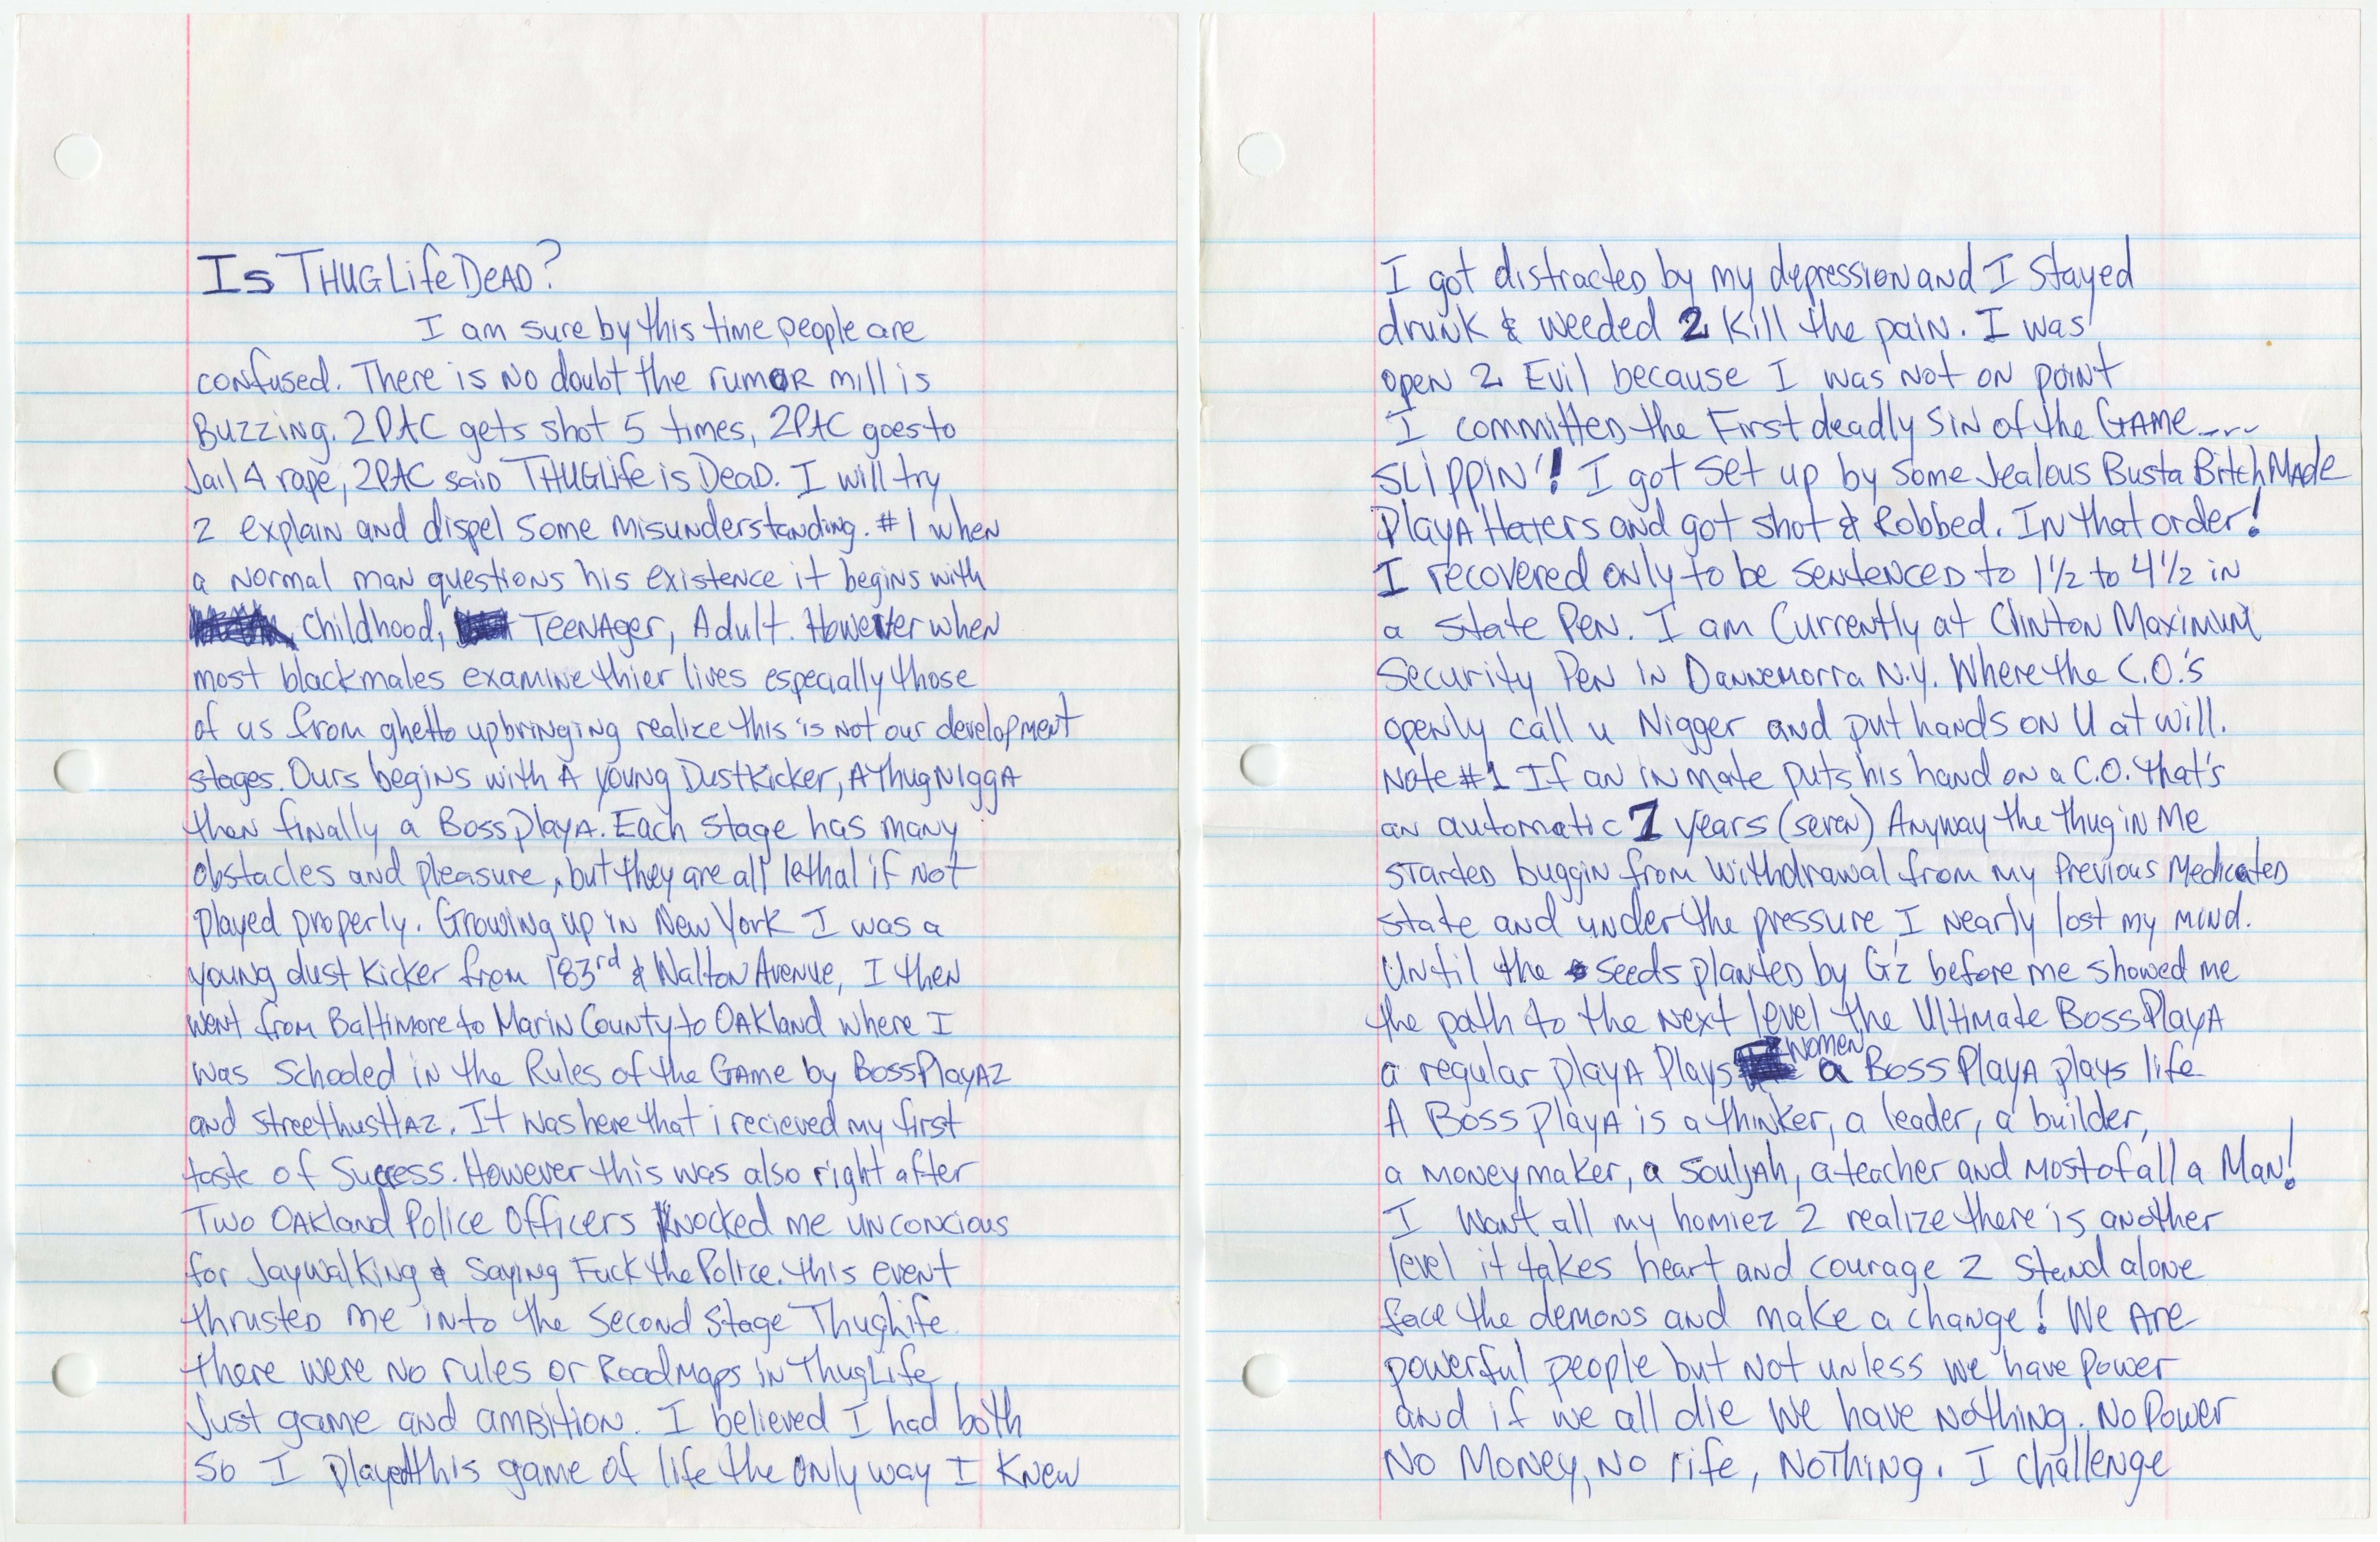 Is THUGLife DeAD?
I am sure by this time people are
confused. There is no doubt the rumor mill is
Buzzing. 2PAC gets shot 5 times, 2PAC goes to
Jail 4 rape, 2PAC said THUGLife is Dead. I will try
2 explain and dispel some misunderstanding. #1 when
a normal man questions his existence it begins with
Childhood, Teenager, Adult. However when
most blackmales examine thier lives especially those
of us from ghetto upbringing realize this is not our development
stages. Ours begins with A young DustKicker, A Thug NIggA
then finally a Boss PlayA. Each stage has many
obstacles and pleasure, but they are all lethal if not
played properly. Growing up in New York I was a
young dust Kicker from 183rd & Walton Avenue, I then
went from Baltimore to Marin County to OAKland where I
was schooled in the Rules of the GAme by BossPlayAZ
and streethustlAZ. It was here that i recieved my first
taste of Success. However this was also right after
Two OAKland Police Officers Knocked me unconcious
for Jaywalking & Saying Fuck the Police. this event
thrusted me into the second stage ThugLife.
there were no rules or RoadMaps in ThugLife
Just game and ambition. I believed I had both
So I played this game of life the only way I Knew
I got distracted by my depression and I stayed
drunk & weeded 2 Kill the pain. I was
open 2 Evil because I was not on point
I committed the First deadly sin of the GAme....
SLippin'! I got set up by some Jealous Busta BitchMAde
PlayA Haters and got shot & Robbed. In that order!
I recovered only to be sentenced to 1½ to 4½ in
a State Pen. I am Currently at Clinton Maximum
Security Pen in Dannemorra N.Y. Where the C.O.'s
openly call u Nigger and put hands on U at will.
Note #1 If an inmate puts his hand on a C.O. that's
an automatic 7 years (seven) Anyway the thug in Me
started buggin from withdrawal from my Previous Medicated
state and under the pressure I nearly lost my mind.
Until the seeds planted by G'z before me showed me
the path to the next level the Ultimate BossPlayA
a regular playA Plays women a Boss PlayA plays life
A Boss PlayA is a thinker, a leader, a builder,
a moneymaker, a souljah, a teacher and most of all a Man!
I want all my homiez 2 realize there is another
level it takes heart and courage 2 stand alone
face the demons and make a change! We Are
powerful people but not unless we have power
and if we all die we have nothing. No Power
No Money, No life, Nothing. I challenge